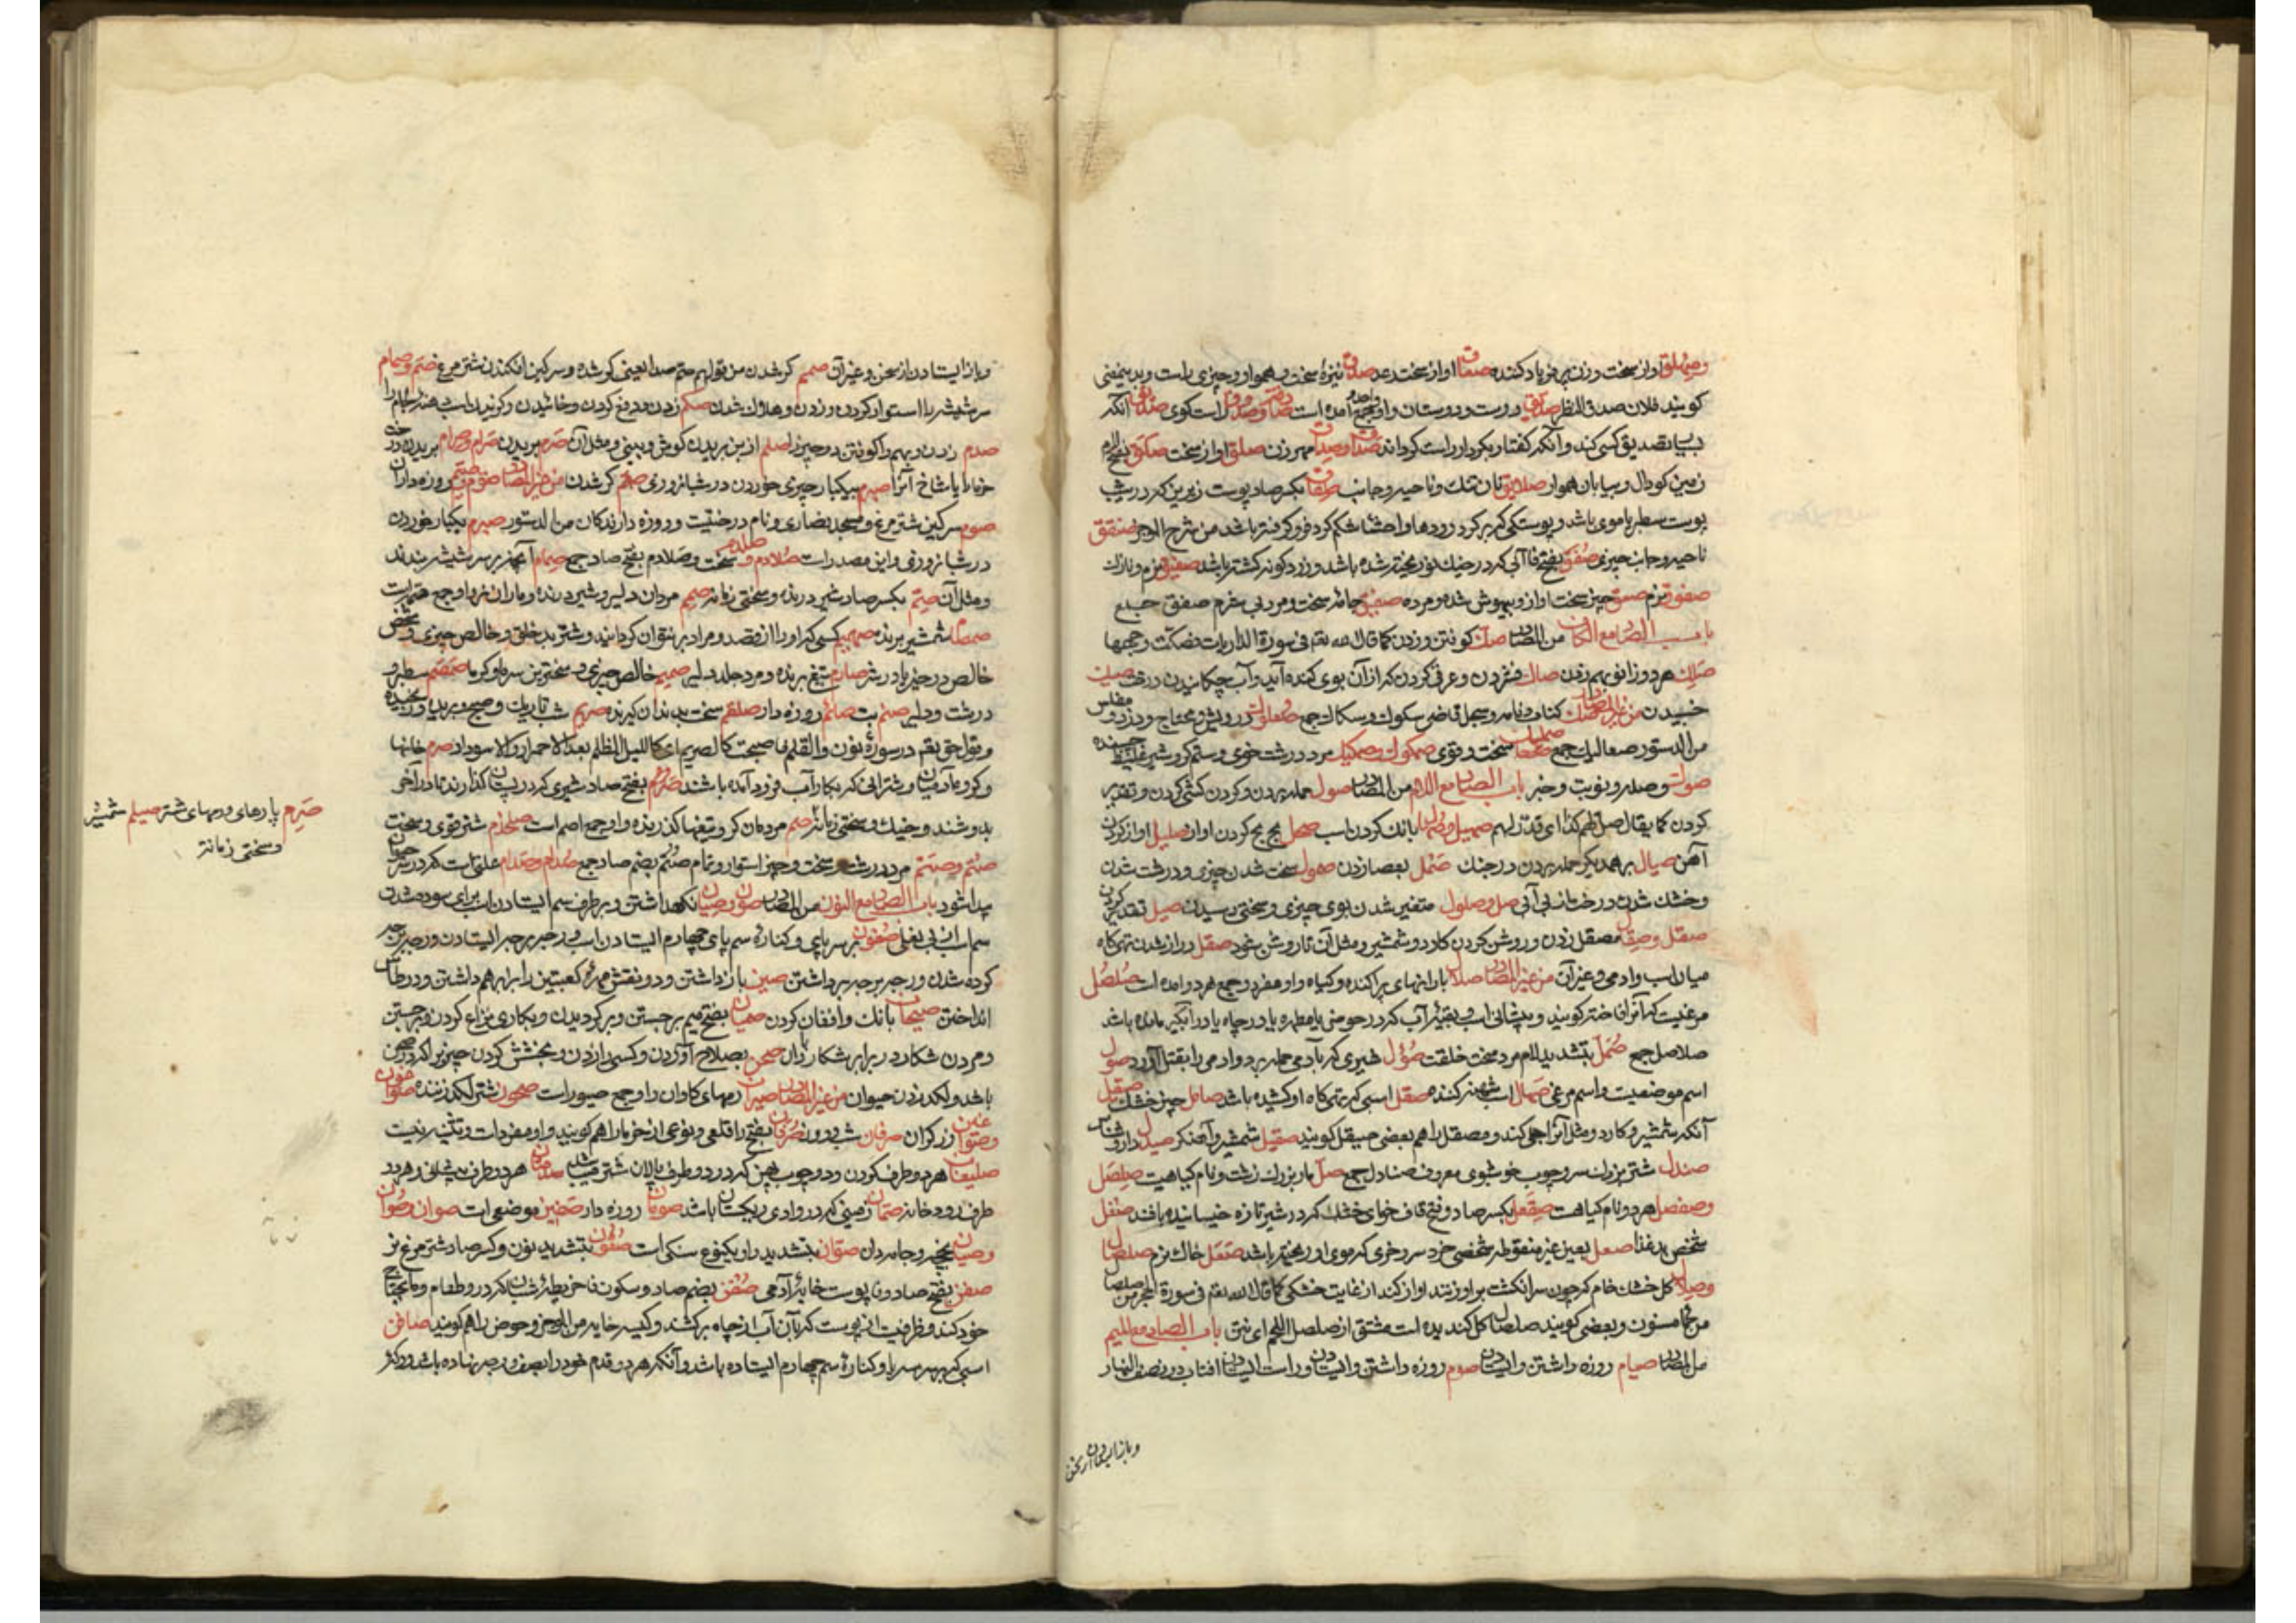 وصهلق آواز سخت و زن پر فریاد کننده صفاق آواز سخت صدق نیزهٔ سخت و هموار و چیزی راست و بدینمعنی
کویند فلان صدق النظر صدیق دوست و دوستان و او جمع آمده است صادق وصدوق راست کوی صدیق آنکه
بسیار تصدیق کسی کند و آنکه کفتار بکردار راست کرداند صداق وصداق مهر زن صلق آواز سخت
زمین کودال و بیابان هموار صلایق نان تنک و ناحیه و جانب صفاق بکسر صاد پوست زیرین که در زیر
پوست سطبر با موی باشد و پوستکی که بر کرد رودها و احشا شکم کرد فرو کرفته باشد من شرح الموجز صفقق
ناحیه و جانب چیزی صفق بفتح فا آبی که در خیک نو ریخته شده باشد و زرد کونه کشته باشد
صفوق نرم صعق چیز سخت آواز و بیهوش شده و مرده صفیق جامهٔ سخت و مرد بی شرم صفق جمع
باب الصاد مع الکاف من المصادر صک کوفتن و زدن کما قال الله تعم فی سورة الذاریات فصکت وجهها
صکک هر دو زانو بهم زدن صاک فشردن و عرق کردن که از آن بوی کنده آید و آب چکانیدن درخت
خسبیدن من غیر المصادر صک کتاب و نامه و سجل قاضی سکوک و سکاک جمع صعلوک درویش و محتاج و دزد و مفلس
من الدستور صعالیک جمع سخت و قوی صمکوک وصمکیک مرد درشت خوی و ستم کر و شیر غلیظ
صولت و صله و نوبت و خبر باب الصاد مع اللام من المصادر صول حمله بردن و کردن کشی کردن و تقدیر
کردن کما یقال صهیل وصهال بانک کردن اسب صحل بج بج کردن آواز صلیل آواز کردن
آهن صیال بر همدیکر حمله بردن در جنک صمل بعصا زدن صمول سخت شدن چیزی و درشت شدن
و خشک شدن درخت از بی آبی صل وصلول متغیر شدن بوی چیزی و سختی رسیدن صیل تقدیر کردن
صقل وصقال مصقل زدن و روشن کردن کارد و شمشیر و مثل آن تا روشن شود صقل دراز شدن تهی کاه
میان اسب و آدمی و غیر آن من غیر المصادر صلال بارانهای پراکنده و کیاه و او مفرد و جمع هر دو آمده است صلصل
مرغیست که آنرا فاخته کویند و پیشانی اسب و بقیهٔ آب که در حوض یا مطهره یا در چاه یا در آبکیر مانده باشد
صلاصل جمع صمل بتشدید لام مرد سخت خلقت صؤل شیری که بآدمی حمله برد و آدمی را بقتل آورد صول
اسم موضعیست و اسم مرغی صهال اسب شیهه کننده صقل اسبی که تهی کاه او کشیده باشد صامل چیز خشک صیقل
آنکه شمشیر و کارد و مثل آنرا جلی کند و مصقل را هم بعضی صیقل کویند صقیل شمشیر و آهنکر صیدل دارو شناس
صندل شتر بزرک سر و چوب خوشبوی معروف صنادل جمع صل مار بزرک زشت و نام کیاهیست صلصل
وصفصل هر دو نام کیاهست صقعل بکسر صاد و فتح قاف خرمای خشک که در شیر تازه خیسانیده باشد صنفل
شخص بد غذا صعل بعین غیر منقوطه شخصی خرد سر و خری که موی او ریخته باشد صقعل خاک نرم صلصال
وصلال کل خشک خام که چون سر انکشت بر او زنند آواز کند از غایت خشکی کما قال الله تعم فی سورة الحجر من صلصال
من حماء مسنون و بعضی کویند صلصال کل کندیده است مشتق از صلصل اللحم ای نتن باب الصاد مع المیم
من المصادر صیام روزه داشتن و ایستادن صوم روزه داشتن و ایستادن و راست ایستادن آفتاب در نصف النهار
و باز ایستادن از سخن
و باز ایستادن از سخن و غیر آن صمم کر شدن من قولهم صم صدا یعنی کر شده و سرکین افکندن شتر مرغ صم وصمام
سر شیشه را استوار کردن و زدن و هلاک شدن صکم زدن و دفع کردن و خائیدن و کزیدن اسب
صدم زدن و بهم وا کوفتن دو چیز را صلم از بن بریدن کوش و بینی و مثل آن صرم بریدن صرام وصرام بریدن درخت
خرما یا شاخ آنرا صیرم بیکبار چیزی خوردن در شبانروزی صمم کر شدن من غیر المصادر صوم وصیم روزه داران
صوم سرکین شتر مرغ و مسجد نصاری و نام درختیست و روزه دارندکان من الدستور صیرم یکبار خوردن
در شبانروزی و این مصدر است صلادم وصلدم سخت و صلادم بفتح صاد جمع صمام آنچه بر سر شیشه بندند
و مثل آن صمم بکسر صاد شیر درنده و سختی زمانه صمیم مردان دلیر و شیر درنده و ماران نر و او جمع صمه است
صمصام شمشیر برنده صمیم کسی که او را از قصد و مراد بر نتوان کردانید و شتر بد خلق و خالص چیزی و شخص
خالص در خیر یا در شر صارم تیغ برنده و مرد جلد دلیر صمیم خالص چیزی و سختترین سرما و کرما صمصم سطبر و
درشت و دلیر صنم بت صائم روزه دار صلقم سخت بدندان کیرنده صریم شب تاریک و صبح و بریده
و قول حق تعم در سورة نون و القلم فاصبحت کالصریم ای کاللیل المظلم بعد الاحمرار و الاسوداد صرم خانها
و کروه آدمیان و شترانی که بکنار آب فرود آمده باشند صرم بفتح صاد شیری که در پستان کذارند تا در آخر
بدوشند و خیک و سختی زمانه صم مردمان کر و تیغها کذرنده و او جمع اصم است صلخدم شتر قوی و سخت
صتم وصتم مرد درشت و سخت و چیز استوار و تمام صتم بضم صاد جمع صدام وصدام علتی است که در سر حیوان
پیدا شود باب الصاد مع النون من المصادر صون وصیان نکهداشتن و بر طرف سم ایستادن اسب برای سوده شدن
سم اسب از بی نعلی صفون بر سه پای و کناره سم پای چهارم ایستادن اسب
کرده شدن صبن باز داشتن و دو نقش مهره کعبتین را برابر هم داشتن و در طاس
انداختن صیحان بانک و افغان کردن صمیان بفتح میم بر جستن و بر کردیدن و بکاری نزاع کردن و بر جستن
در مردن شکار در برابر شکار ران صحن بصلاح آوردن و کسی را زدن و بخشش کردن چیزی را که در صحن
باشد و لکد زدن حیوان من غیر المصادر صیران رمهای کاوان و او جمع صیور است صحون شتر لکد زننده صواغون
وصواغین زرکران صرفان شب و روز صرفان بفتح را قلعی و نوعی از خرما را هم کویند و او مفرد است و تثنیه نیست
صلیفان هر دو طرف کردن و دو چوب پهن که در دو طرف پالان شتر میباشد صدغان هر دو طرف پیشانی و هر دو
طرف رودخانه صمان زمینی که در وادی ریکستان باشد صومان روزه دار صفین موضعی است صوان وصوان
وصیان تخته جامه دان صوان بتشدید واو یکنوع سنکی است صفون بتشدید نون و کسر صاد شتر مرغ نر
صفن بفتح صاد و فا پوست خایهٔ آدمی صفن بضم صاد و سکون فا خریطهٔ شبان که در و طعام و مایحتاج
خود کند و ظرفیست از پوست که بآن آب از چاه بر کشند و کیسه خایه من الموجز و حوض را هم کویند صافن
اسبی که بر سه پا و کناره سم چهارم ایستاده باشد و آنکه هر دو قدم خود را بصف در بر نهاده باشد و رکی
صرم پارهای و رمهای شتر صیلم شمشیر
و سختی زمانه